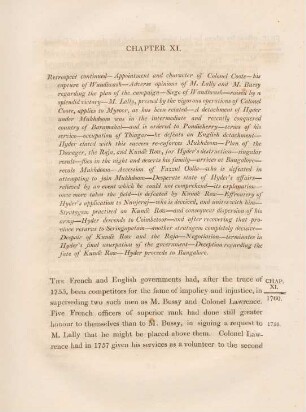 CHAPTER XI.
Retrospect continued—Appointment and character of Colonel Coote—his
capture of Wandiwash—Adverse opinions of M. Lally and M. Bussy
regarding the plan of the campaign—Siege of Wandiwash—raised by a
splendid victory—M. Lally, pressed by the vigorous operations of Colonel
Coote, applies to Mysoor, as has been related—A detachment of Hyder
under Mukhdoom was in the intermediate and recently conquered
country of Baramahal—and is ordered to Pondicherry—terms of his
service—occupation of Thiagar—he defeats an English detachment—
Hyder elated with this success re-inforces Mukhdoom—Plan of the
Dowager, the Raja, and Kundè Row, for Hyder's destruction—singular
results—flies in the night and deserts his family—arrives at Bangalore—
recals Mukhdoom—Accession of Fuzzul Oolla—who is defeated in
attempting to join Mukhdoom—Desperate state of Hyder's affairs—
relieved by an event which he could not comprehend—its explanation—
once more takes the field—is defeated by Kundè Row—Effrontery of
Hyder's application to Nunjeraj—who is deceived, and unites with him—
Stratagem practised on Kundè Row—and consequent dispersion of his
army—Hyder descends to Coimbatoor—and after recovering that pro-
vince returns to Seringapatam—another stratagem completely successive—
Despair of Kundè Row and the Raja—Negotiation—terminates in
Hyder's final usurpation of the government—Deception regarding the
fate of Kundè Row—Hyder proceeds to Bangalore.
The French and English governments had, after the truce of
1755, been competitors for the fame of impolicy and injustice, in
superceding two such men as M. Bussy and Colonel Lawrence.
Five French officers of superior rank had done still greater
honour to themselves than to M. Bussy, in signing a request to
M. Lally that he might be placed above them. Colonel Law-
rence had in 1757 given his services as a volunteer to the second
CHAP.
XI.
1760.
1758.